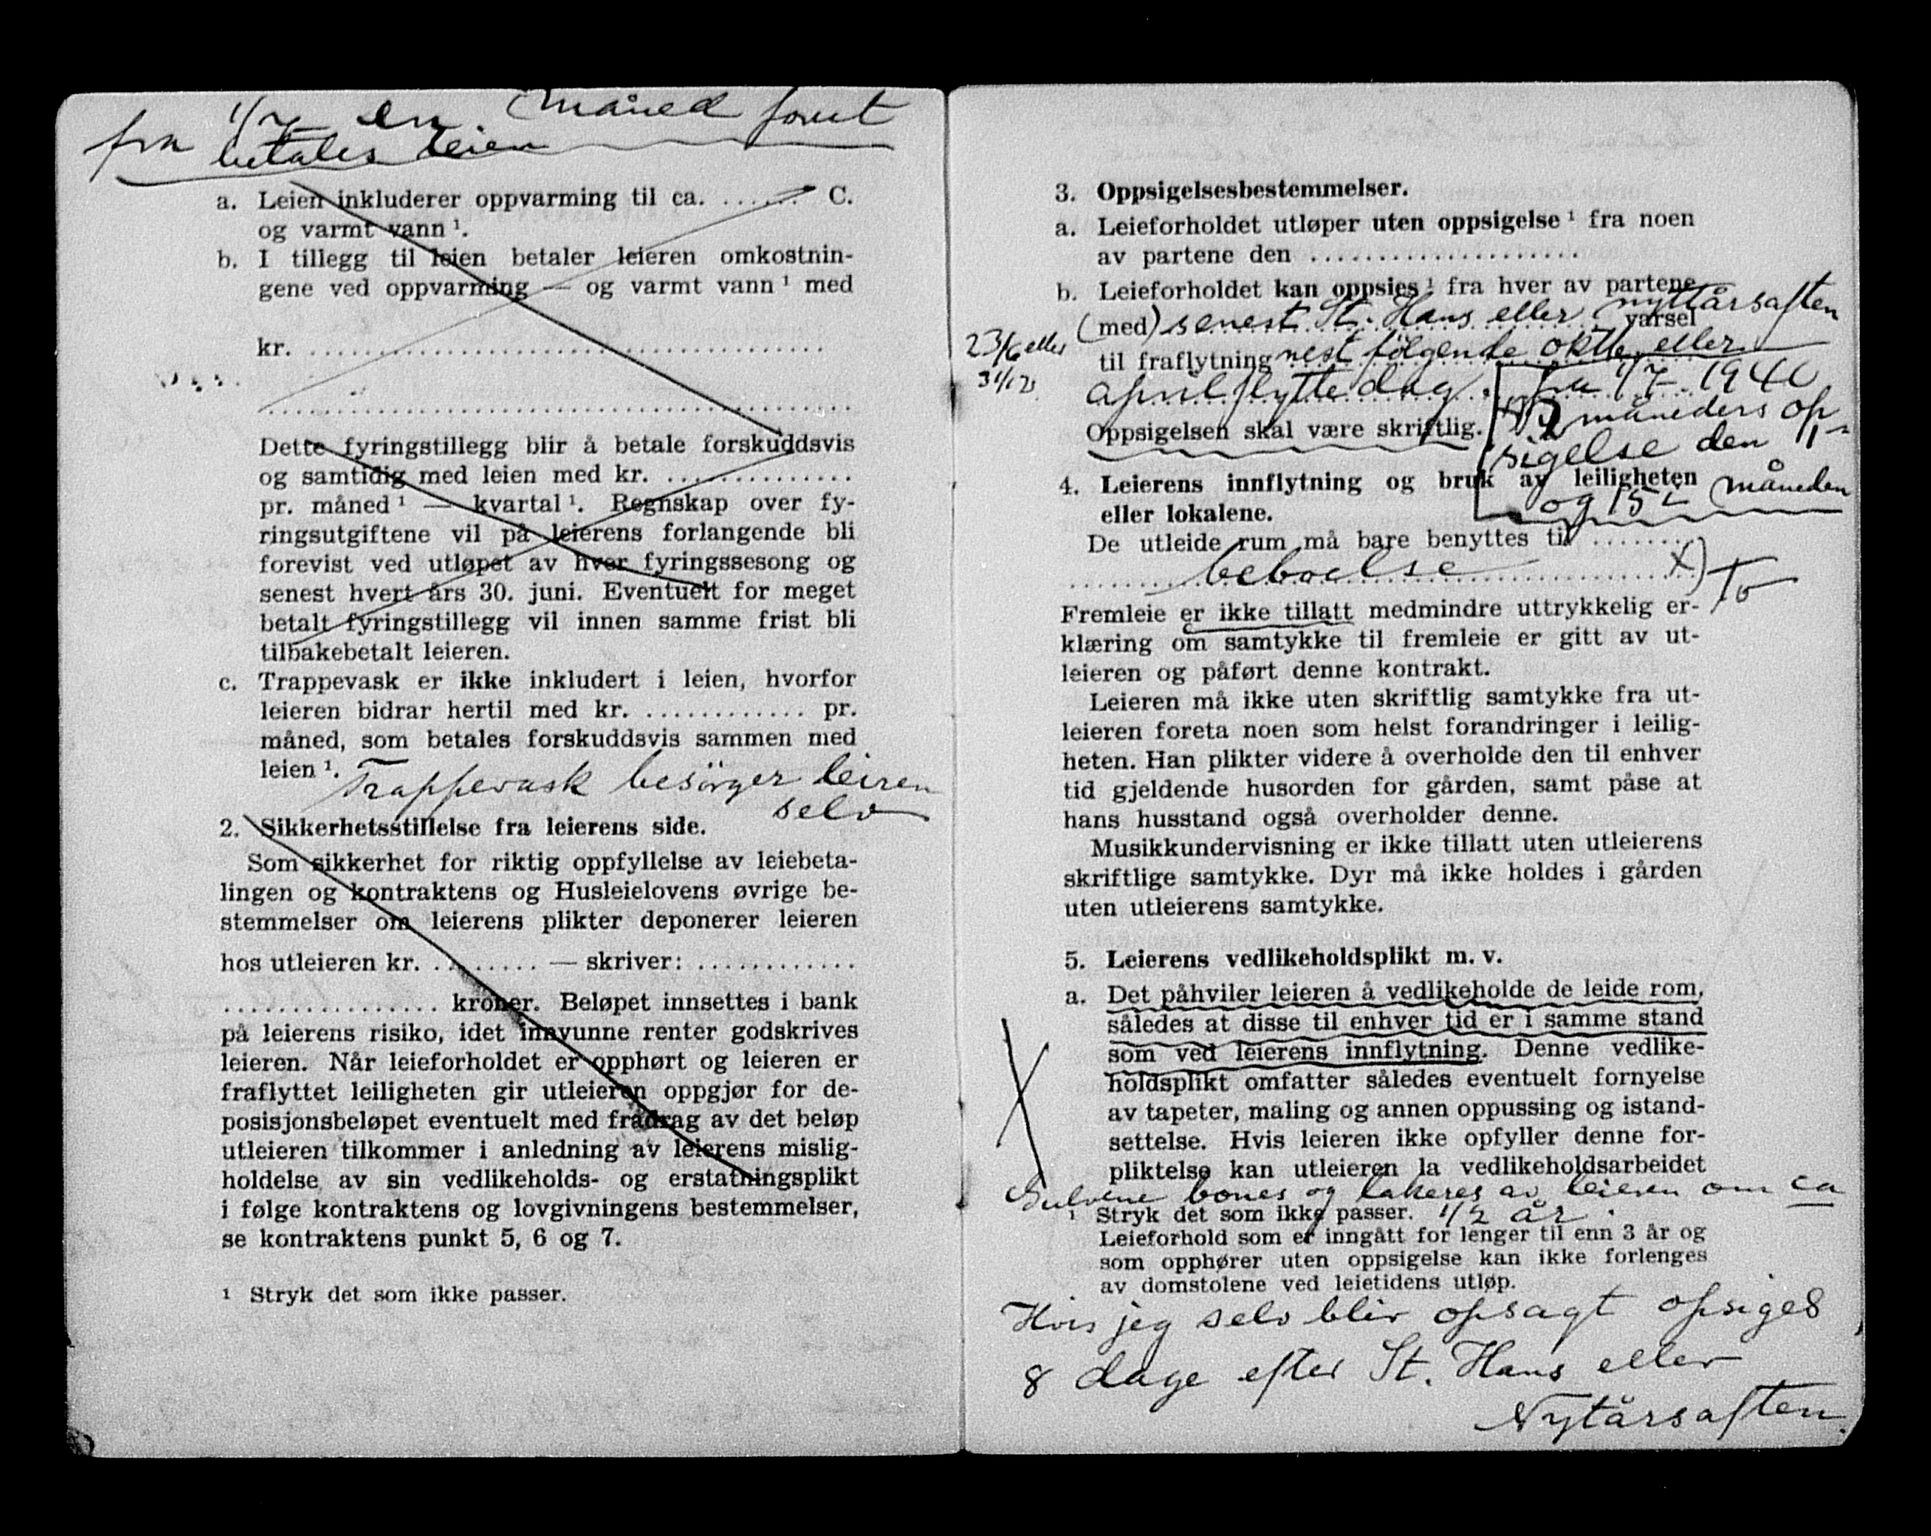 fra 1/7 en måned forut
betales leien
a. Leien inkluderer oppvarming til ca. ....... C.
og varmt vann ¹.
b. I tillegg til leien betaler leieren omkostnin-
gene ved oppvarming — og varmt vann ¹ med
kr. ......................................
............................................
Dette fyringstillegg blir å betale forskuddsvis
og samtidig med leien med kr. ...............
pr. måned ¹ — kvartal ¹. Regnskap over fy-
ringsutgiftene vil på leierens forlangende bli
forevist ved utløpet av hver fyringssesong og
senest hvert års 30. juni. Eventuelt for meget
betalt fyringstillegg vil innen samme frist bli
tilbakebetalt leieren.
c. Trappevask er ikke inkludert i leien, hvorfor
leieren bidrar hertil med kr. ............ pr.
måned, som betales forskuddsvis sammen med
leien ¹. Trappevask besørger leiren
selv
2. Sikkerhetsstillelse fra leierens side.
Som sikkerhet for riktig oppfyllelse av leiebeta-
lingen og kontraktens og Husleielovens øvrige be-
stemmelser om leierens plikter deponerer leieren
hos utleieren kr. ........ — skriver: ............
................ kroner. Beløpet innsettes i bank
på leierens risiko, idet innvunne renter godskrives
leieren. Når leieforholdet er opphørt og leieren er
fraflyttet leiligheten gir utleieren oppgjør for de-
posisjonsbeløpet eventuelt med fradrag av det beløp
utleieren tilkommer i anledning av leierens mislig-
holdelse av sin vedlikeholds- og erstatningsplikt
i følge kontraktens og lovgivningens bestemmelser,
se kontraktens punkt 5, 6 og 7.
¹ Stryk det som ikke passer.
3. Oppsigelsesbestemmelser.
a. Leieforholdet utløper uten oppsigelse ¹ fra noen
av partene den ....................
b. Leieforholdet kan oppsies ¹ fra hver av partene
(med) senest St. Hans eller nyttårsaften varsel
23/6 eller
31/12
til fraflytning nest følgende oktb. eller
april flyttedag. fra 1/7 1940
Oppsigelsen skal være skriftlig.
måneders op
sigelse den 1/1-
og 15. måneden
4. Leierens innflytning og bruk av leiligheten
eller lokalene.
De utleide rum må bare benyttes til ........
beboelse x) To
Fremleie er ikke tillatt medmindre uttrykkelig er-
klæring om samtykke til fremleie er gitt av ut-
leieren og påført denne kontrakt.
Leieren må ikke uten skriftlig samtykke fra ut-
leieren foreta noen som helst forandringer i leilig-
heten. Han plikter videre å overholde den til enhver
tid gjeldende husorden for gården, samt påse at
hans husstand også overholder denne.
Musikkundervisning er ikke tillatt uten utleierens
skriftlige samtykke. Dyr må ikke holdes i gården
uten utleierens samtykke.
5. Leierens vedlikeholdsplikt m. v.
a. Det påhviler leieren å vedlikeholde de leide rom,
således at disse til enhver tid er i samme stand
som ved leierens innflytning. Denne vedlike-
holdsplikt omfatter således eventuelt fornyelse
av tapeter, maling og annen oppussing og istand-
settelse. Hvis leieren ikke opfyller denne for-
pliktelse kan utleieren la vedlikeholdsarbeidet
Gulvene bones og lakeres av leieren om ca
¹ Stryk det som ikke passer. 1/2 år.
Leieforhold som er inngått for lenger til enn 3 år og
som opphører uten oppsigelse kan ikke forlenges
av domstolene ved leietidens utløp.
Hvis jeg selv blir opsagt opsiges
8 dage efter St. Hans eller
Nytårsaften.